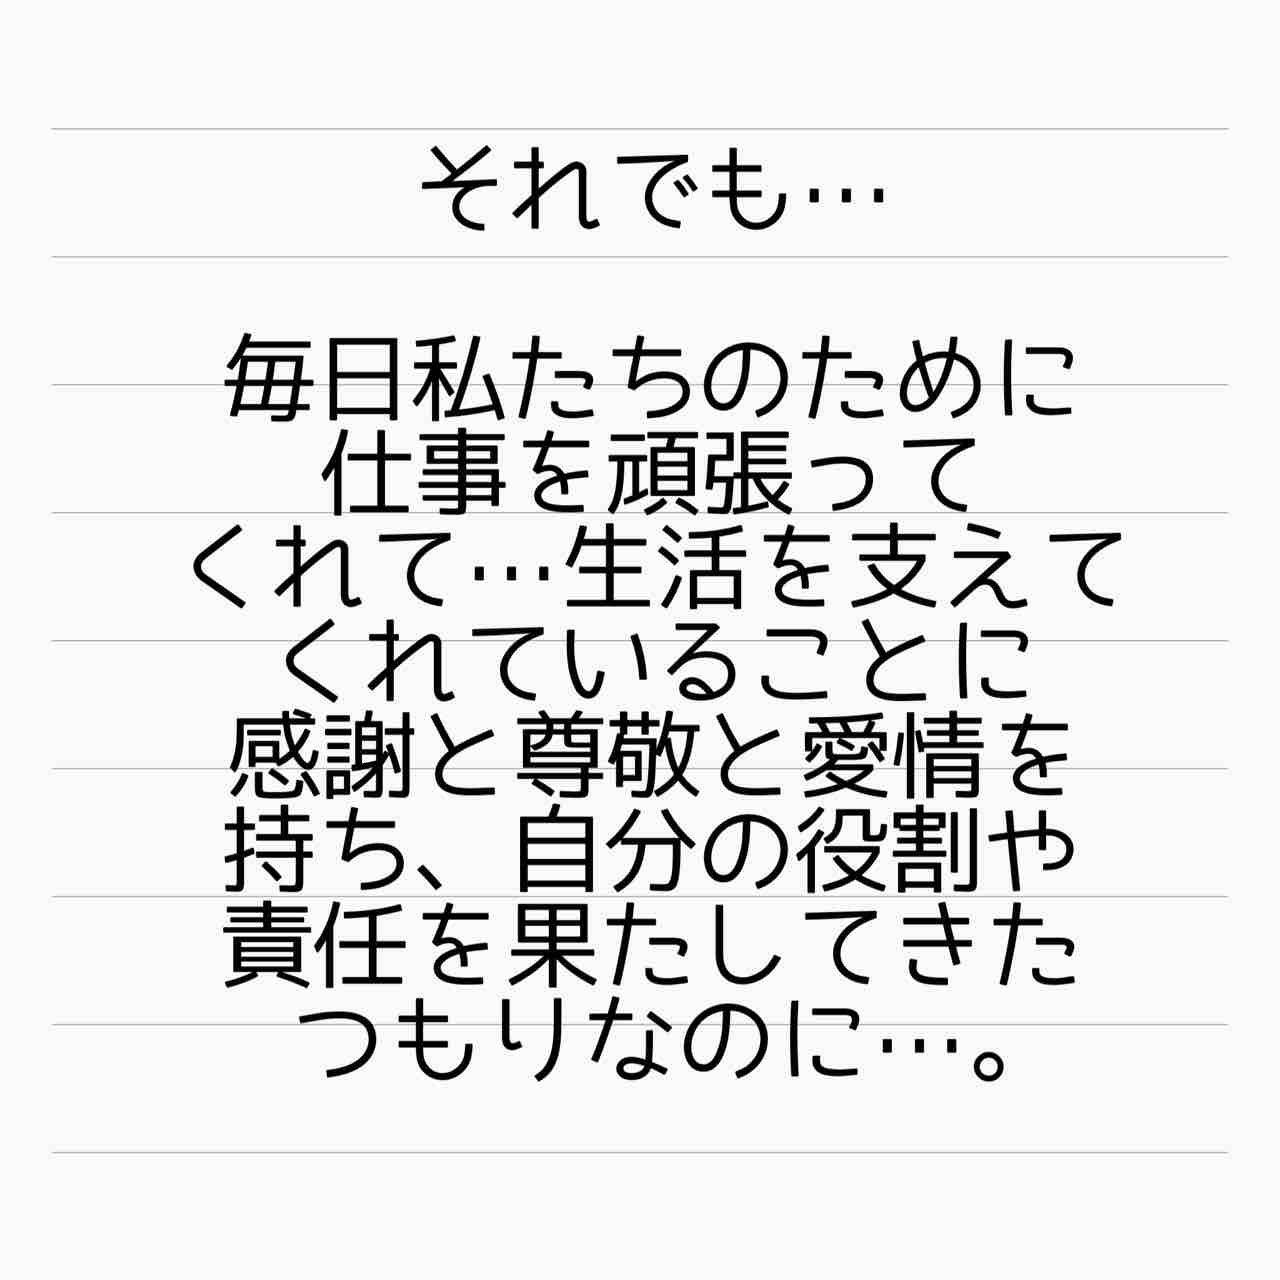 それでも…
毎日私たちのために
仕事を頑張って
くれて…生活を支えて
くれていることに
感謝と尊敬と愛情を
持ち、自分の役割や
責任を果たしてきた
つもりなのに…。